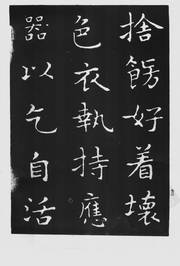 捨餝好着壞
色衣執持應
器以乞自活